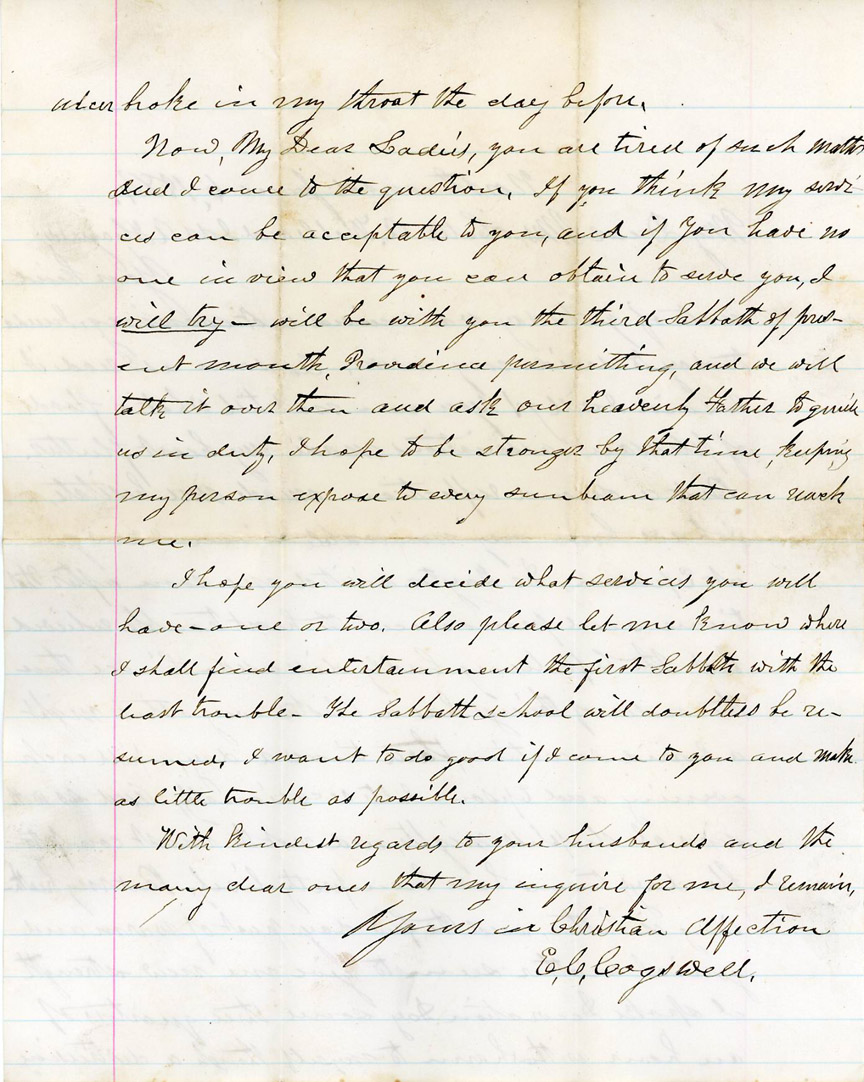 ulcer broke in my throat the day before.
Now, My Dear Ladies, you are tired of such matters
and I come to the question. If you think my servi
ces can be acceptable to you, and if you have no
one in view that you can obtain to serve you, I
will try - will be with you the third Sabbath of pres-
ent month, Providence permitting, and we will
talk it over then and ask our Heavenly Father to guide
us in duty, I hope to be stronger by that time, keeping
my person expose to every sunbeam that can reach
me.
I hope you will decide what services you will
have - one or two. Also please let me know where
I shall find entertainment the first Sabbth with the
least trouble - The Sabbath school will doubtless be re-
sumed, I want to do good if I come to you and make
as little trouble as possible.
With kindest regards to your husbands and the
many dear ones that my inquire for me, I remain,
Yours in Christian Affection
E. C. Cogswell.